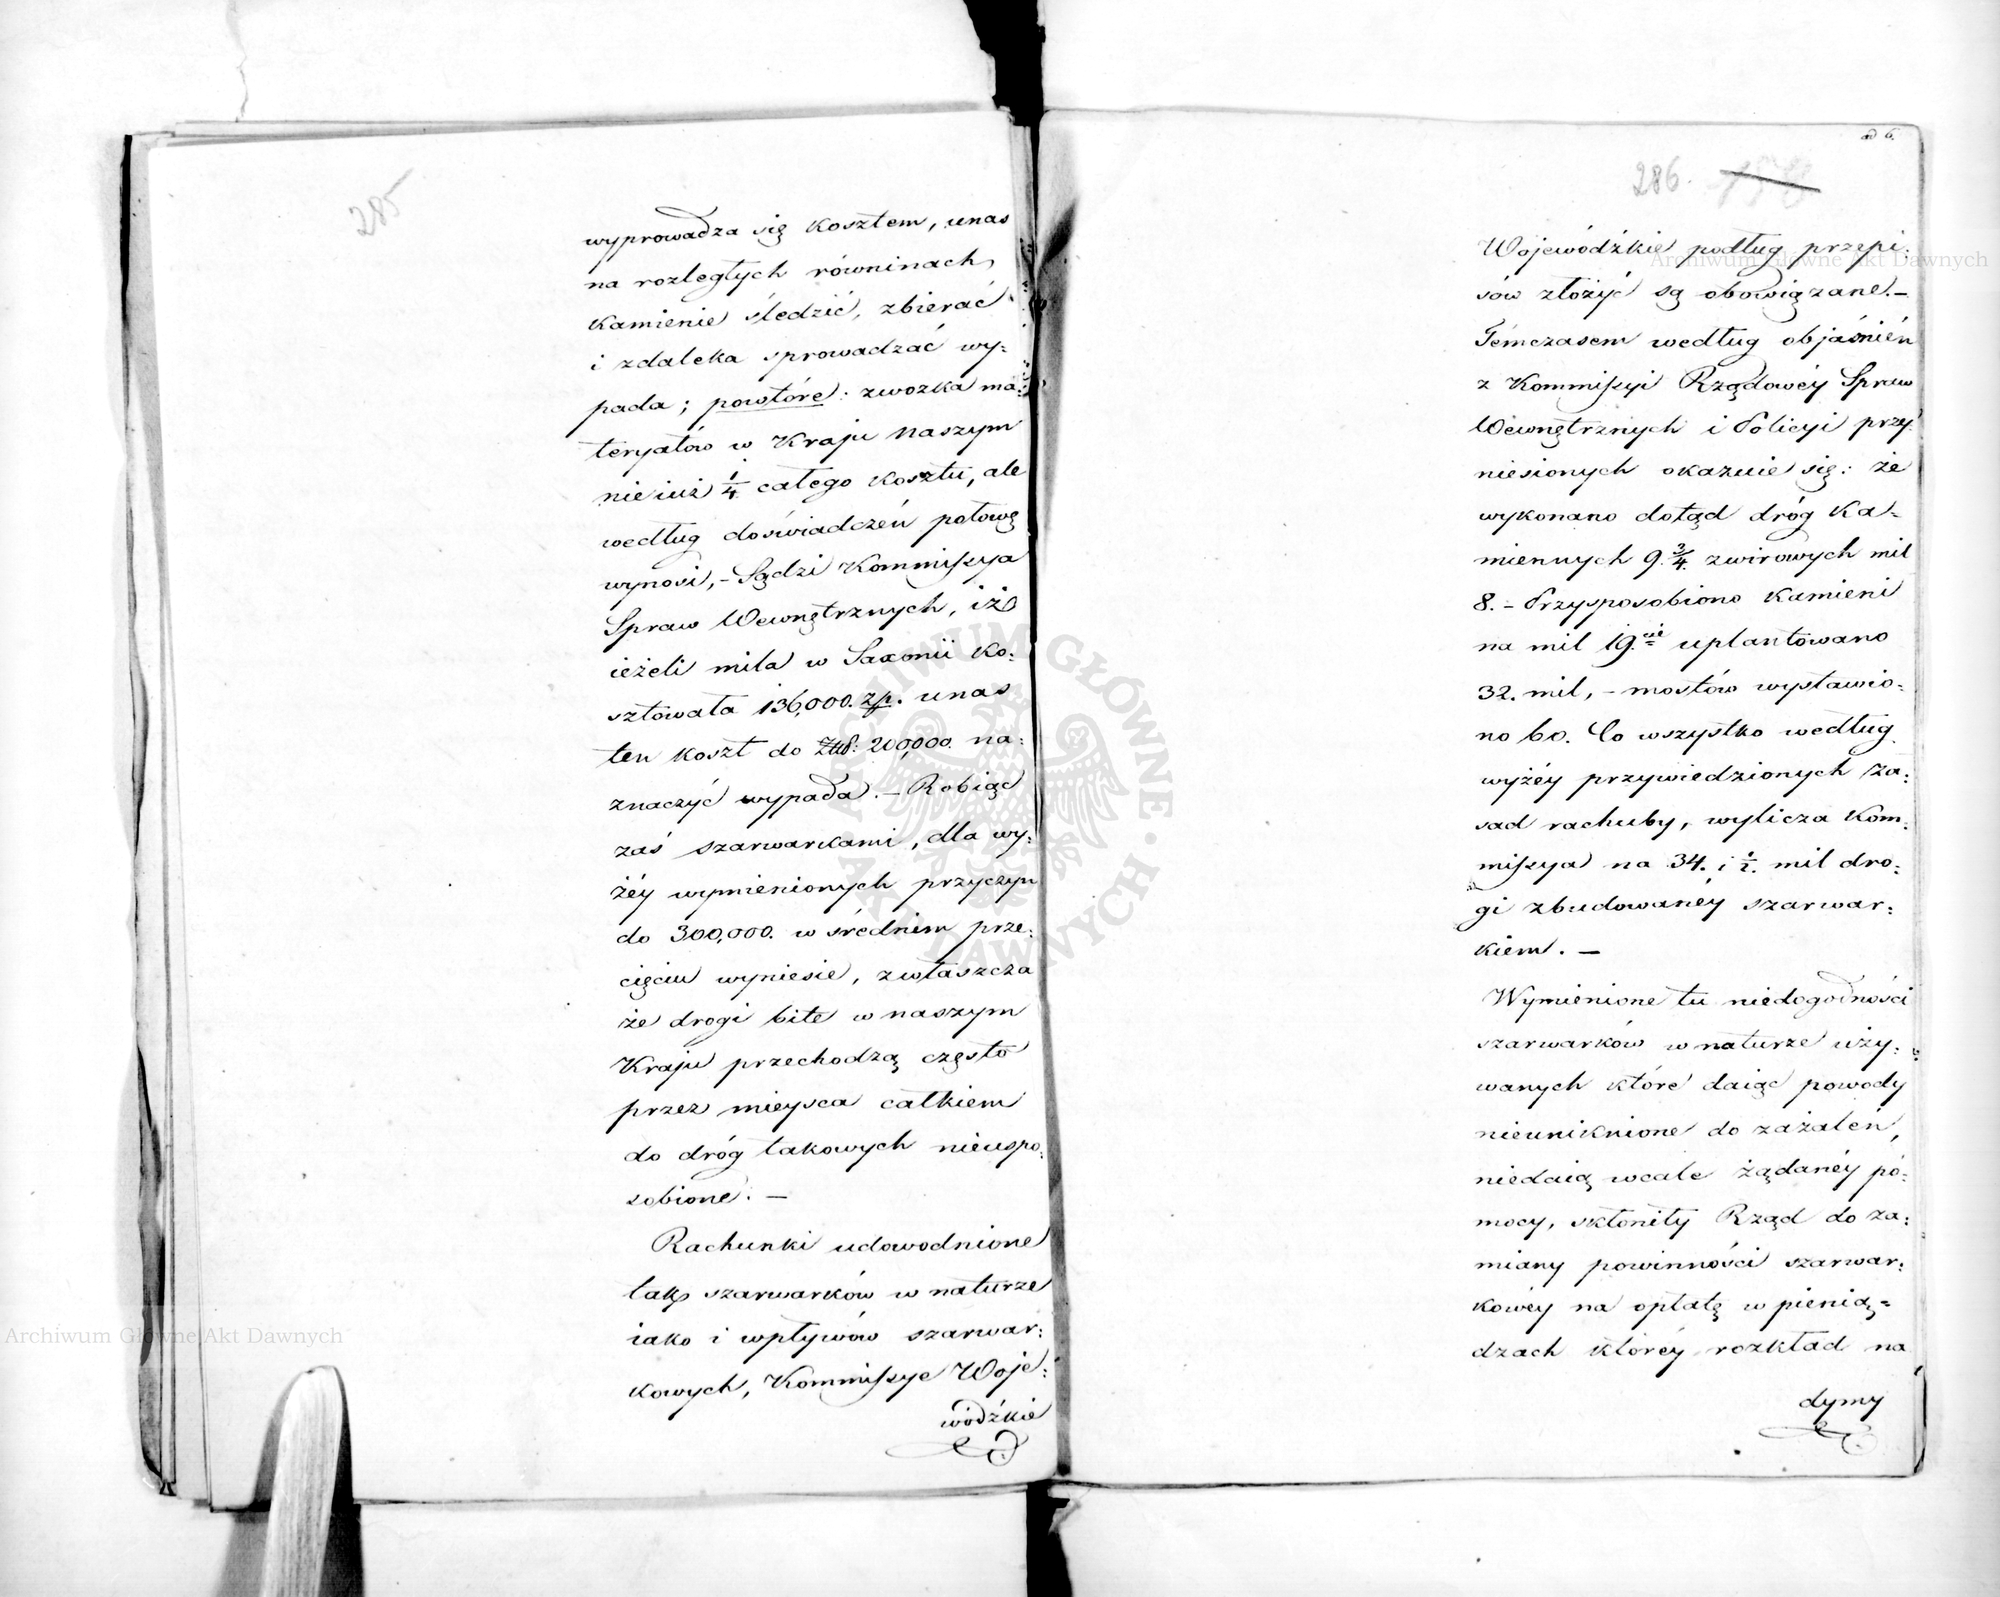 285
wyprowadza się kosztem, unas
na rozległych równinach
kamienie śledzić, zbierać
i zdaleka sprowadzać wy-
pada; powtóre: zwozka ma-
teryałów w Kraju naszym
nie iuż 1/4 całego kosztu, ale
według doświadczeń połowę
wynosi, – Sądzi Kommissya
Spraw Wewnętrznych, iż
ieżeli mila w Saxonii ko-
sztowała 136,000. zp. unas
ten koszt do 200,000. na-
znaczyć wypada. – Robiąc
zaś szarwarkami, dla wy-
żéy wymienionych przyczyn
do 300,000. w średnim prze-
cięciu wyniesie, zwłaszcza
że drogi bite w naszym
Kraju przechodzą często
przez mieysca całkiem
do dróg takowych nieuspo-
sobione. –
Rachunki udowodnione
tak szarwarków w naturze
iako i wpływów szarwar-
kowych, Kommissye Woje-
wódzkie
ad 6.
286.
Wojewódzkie podług przepi-
sów złożyć są obowiązane. –
Témczasem według objaśnień
z Kommissyi Rządowéy Spraw
Wewnętrznych i Policyi przy-
niesionych okazuie się: że
wykonano dotąd dróg Ka-
miennych 9. 3/4. zwirowych mil
8. – Przysposobiono Kamieni
na mil 19. uplantowano
32. mil, – mostów wystawio-
no 60. Co wszystko według
wyżéy przywiedzionych za-
sad rachuby, wylicza Kom-
missya na 34. i 1/2. mil dro-
gi zbudowanéy szarwar-
kiem. –
Wymienione tu niedogodności
szarwarków w naturze uży-
wanych które daiąc powody
nieuniknione do zażaleń,
niedaią wcale żądanéy po-
mocy, skłoniły Rząd do za-
miany powinności szarwar-
kowéy na opłatę w pienią-
dzach któréy rozkład na
dymy
Archiwum Główne Akt Dawnych
Archiwum Główne Akt Dawnych
ARCHIWUM GŁÓWNE AKT DAWNYCH